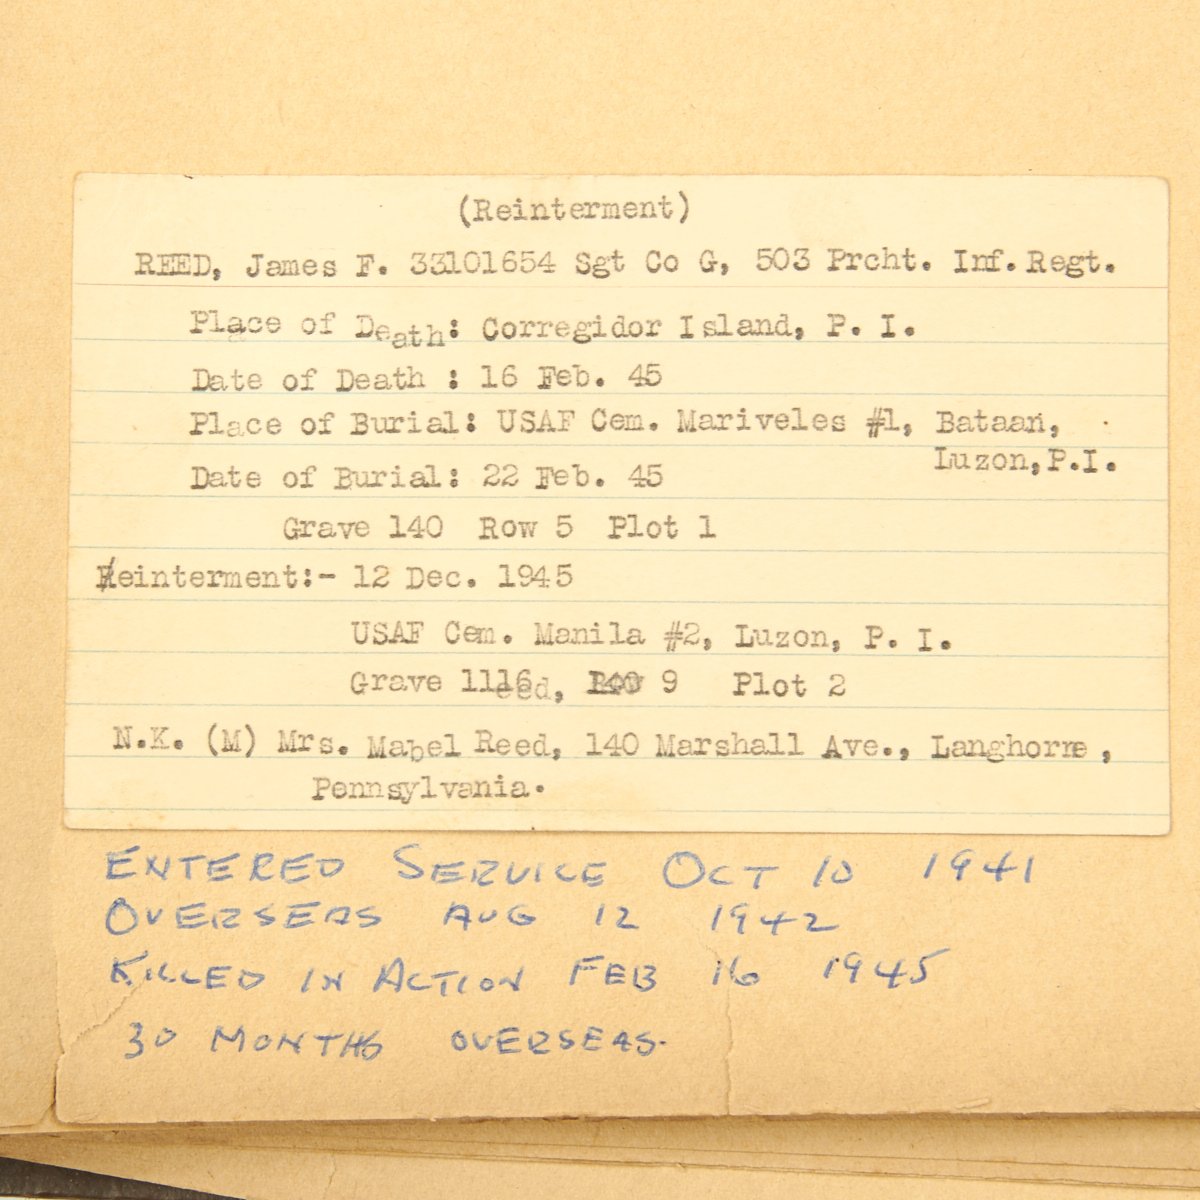 (Reinterment)
REED, James F. 33101654 Sgt Co G, 503 Prcht. Inf. Regt.
Place of Death: Corregidor Island, P. I.
Date of Death : 16 Feb. 45
Place of Burial: USAF Cem. Mariveles #1, Bataan,
Luzon, P.I.
Date of Burial: 22 Feb. 45
Grave 140 Row 5 Plot 1
Reinterment:- 12 Dec. 1945
USAF Cem. Manila #2, Luzon, P. I.
Grave 1116, Row 9 Plot 2
N.K. (M) Mrs. Mabel Reed, 140 Marshall Ave., Langhorne,
Pennsylvania.
ENTERED SERVICE OCT 10 1941
OVERSEAS AUG 12 1942
KILLED IN ACTION FEB 16 1945
30 MONTHS OVERSEAS.